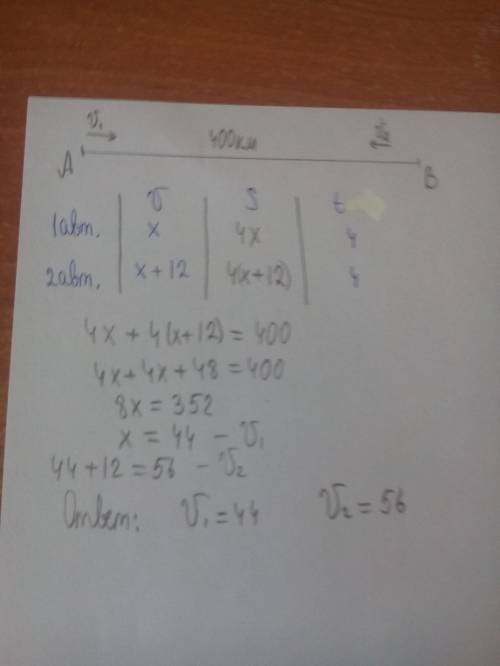 V₁
400км
A B
V S t
1авт. x 4x 4
2авт. x+12 4(x+12) 4
4x + 4(x+12) = 400
4x+4x+48=400
8x=352
x = 44 - V₁
44+12=56 - V₂
Ответ: V₁=44 V₂=56